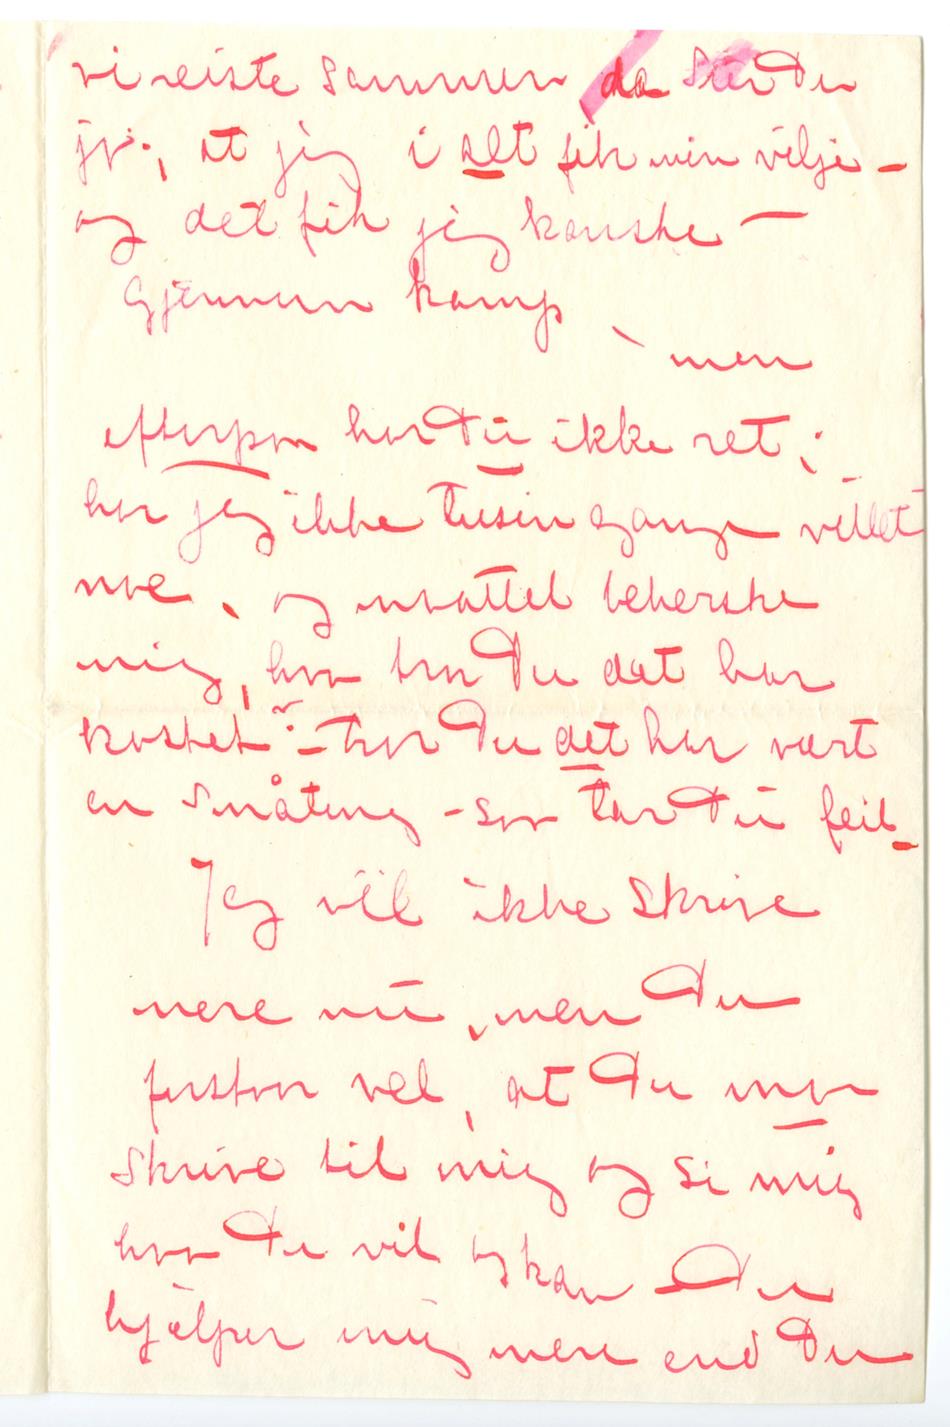 vi reiste sammen da sier Du
jo; at jeg i alt fik min vilje –
og det fik jeg kanske –
gjennem kamp
, men
efterpaa har Du ikke ret;
har jeg ikke tusin gange villet
noe, og maattet beherske
mig, hva tror Du det har
kostet – tror Du det har vært
en småting – saa tar Du feil –
Jeg vil ikke skrive
mere nu, men Du
forstaar vel, at Du maa
skrive til mig og si mig
hva Du vil og kan Du
hjælper mig mere end Du